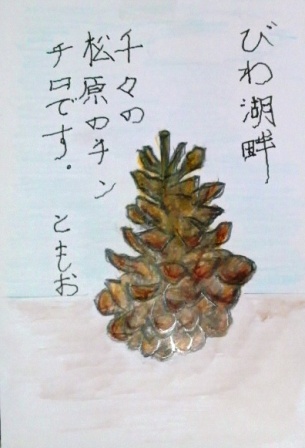 びわ湖畔
千々の
松原のチン
チロです.
ともお